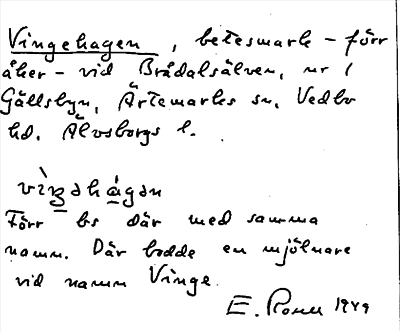 Vingehagen, betesmark – förr
åker – vid Brådalsälven, nr 1
Gällsbyn, Ärtemarks sn, Vedbo
hd. Älvsborgs l.
vìŋəhàgən
Förr bs där med samma
namn. Där bodde en mjölnare
vid namn Vinge.
E. Rosen 1949